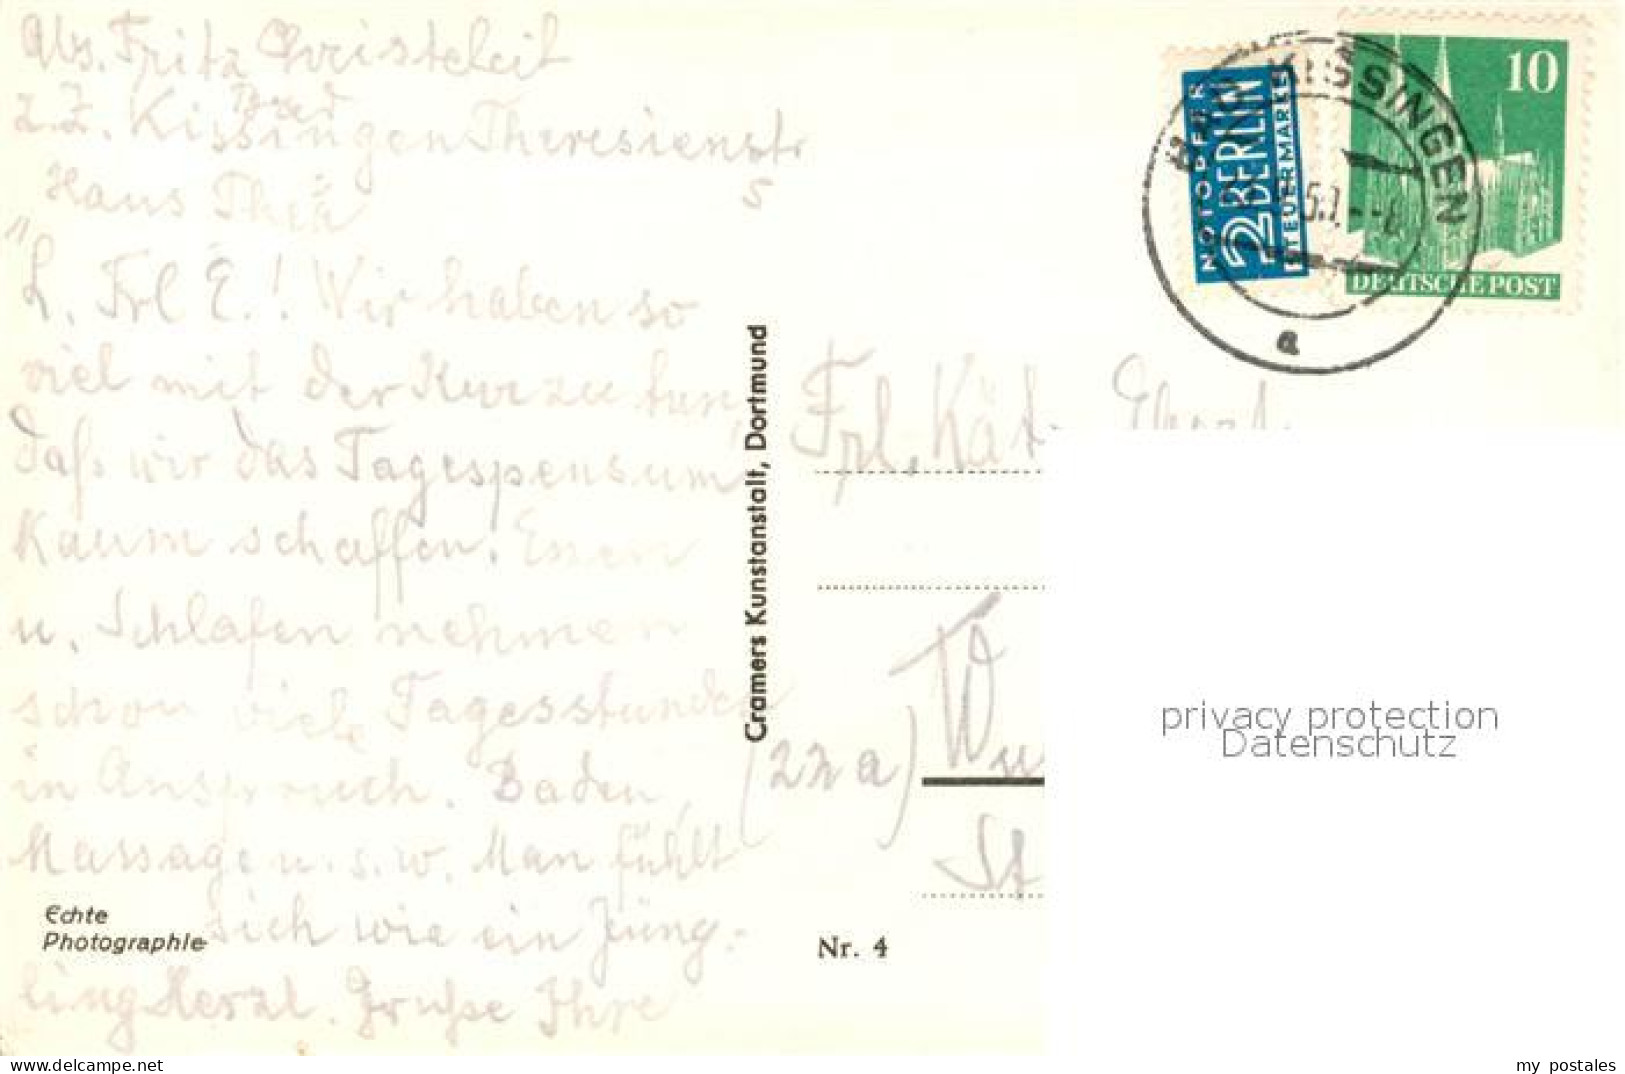 Abs. Fritz Christeleit
z.Z. Bad
Kissingen Theresienstr
5
Haus Thea
L. Frl E.! Wir haben so
viel mit der Kur zu tun,
daß wir das Tagespensum
kaum schaffen. Essen
u. Schlafen nehmen
schon viele Tagesstunden
in Anspruch. Baden,
Massage u.s.w. Man fühlt
sich wie ein Jüng-
ling Herzl. Grüße Ihre
Echte
Photographie
Cramers Kunstanstalt, Dortmund
Nr. 4
NOTOPFER
2 BERLIN
STEUERMARKE
10
DEUTSCHE POST
BAD KISSINGEN
a
Frl. Kät
(22a) Wu
St
privacy protection
Datenschutz
www.delcampe.net
my_postales